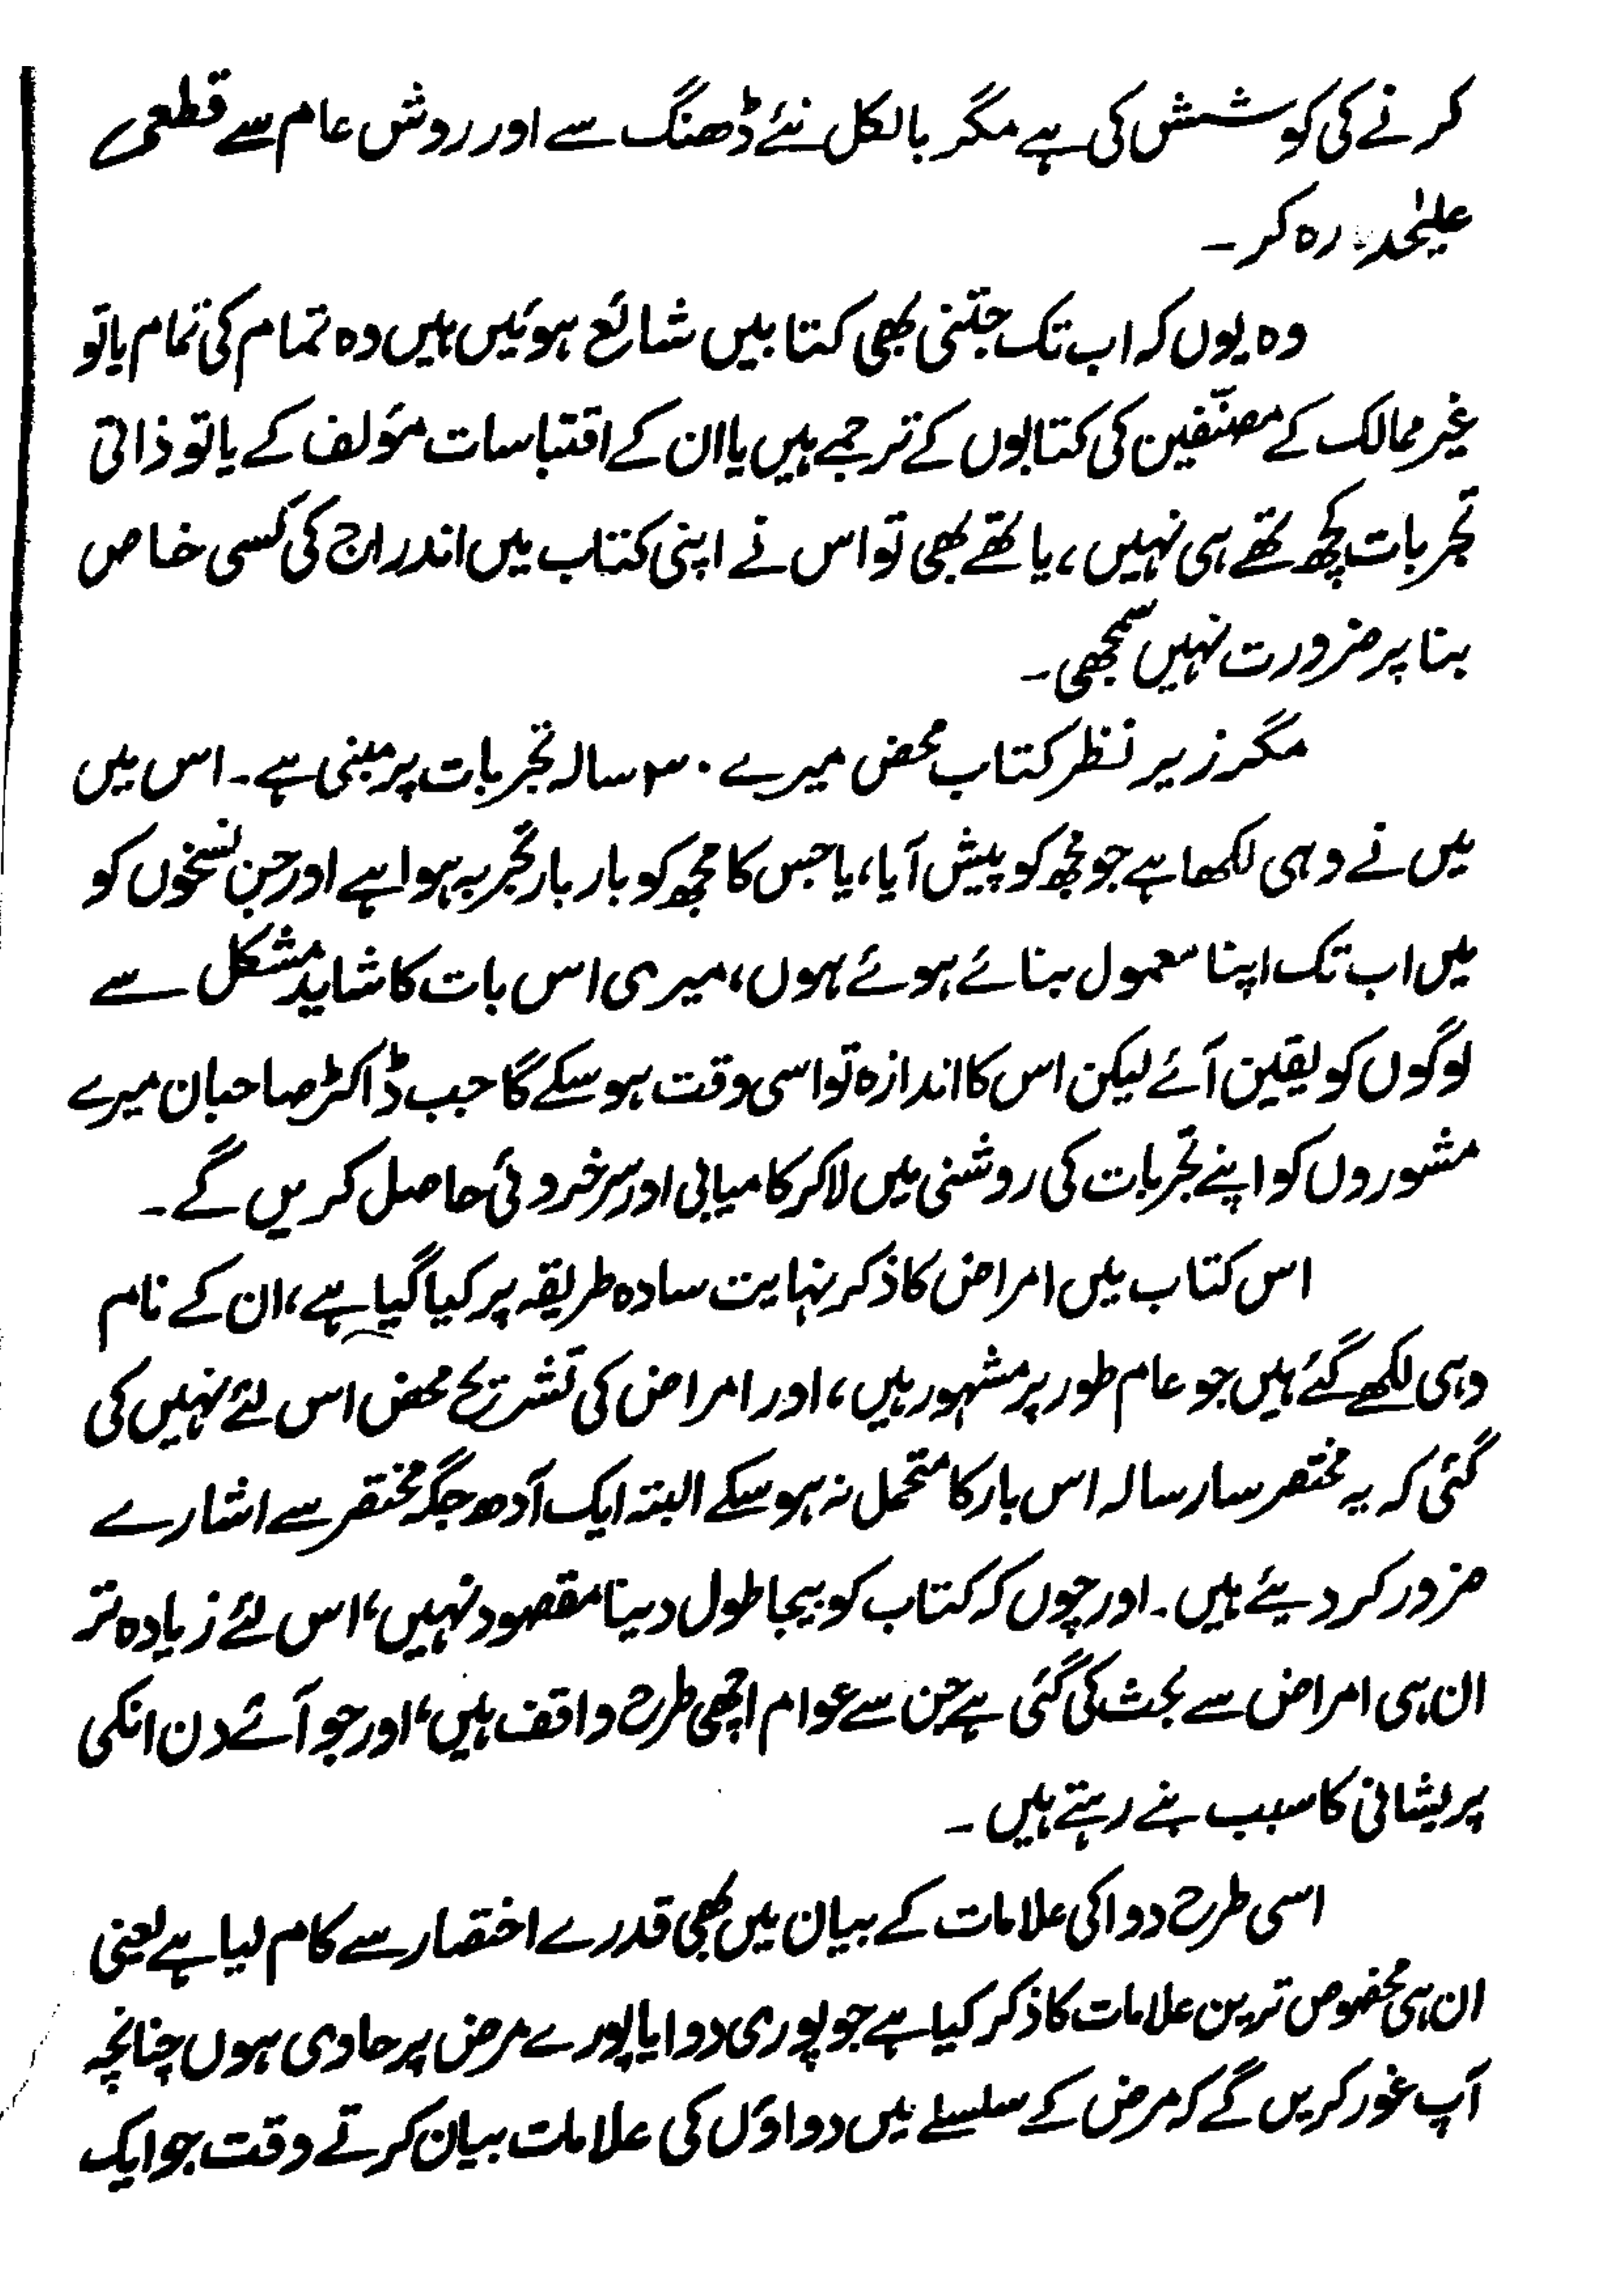 کرنے کی کوشش کی ہے مگر بالکل نئے ڈھنگ سے اور روش عام سے قطعی
علیٰحدہ رہ کر ۔
وہ یوں کہ اب تک جتنی بھی کتابیں شائع ہوئیں ہیں وہ تمام کی تمام یا تو
غیر ممالک کے مصنّفین کی کتابوں کے ترجمے ہیں یا ان کے اقتباسات مؤلف کے یا تو ذاتی
تجربات کچھ تھے ہی نہیں، یا تھے بھی تو اس نے اپنی کتاب میں اندراج کی کسی خاص
بنا پر ضرورت نہیں سمجھی ۔
مگر زیر نظر کتاب محض میرے ۳۰ سالہ تجربات پر مبنی ہے ۔ اس میں
میں نے وہی لکھا ہے جو مجھ کو پیش آیا، یا جس کا مجھ کو بار بار تجربہ ہوا ہے اور جن نسخوں کو
میں اب تک اپنا معمول بنائے ہوئے ہوں، میری اس بات کا شاید مشکل سے
لوگوں کو یقین آئے لیکن اس کا اندازہ تو اسی وقت ہو سکے گا جب ڈاکٹر صاحبان میرے
مشوروں کو اپنے تجربات کی روشنی میں لا کر کامیابی اور سرخروئی حاصل کریں گے ۔
اس کتاب میں امراض کا ذکر نہایت سادہ طریقہ پر کیا گیا ہے، ان کے نام
وہی لکھے گئے ہیں جو عام طور پر مشہور ہیں، اور امراض کی تشریح محض اس لئے نہیں کی
گئی کہ یہ مختصر سا رسالہ اس بار کا متحمل نہ ہو سکے البتہ ایک آدھ جگہ مختصر سے اشارے
ضرور کر دیئے ہیں ۔ اور چوں کہ کتاب کو بیجا طول دینا مقصود نہیں، اس لئے زیادہ تر
ان ہی امراض سے بحث کی گئی ہے جن سے عوام اچھی طرح واقف ہیں، اور جو آئے دن انکی
پریشانی کا سبب بنے رہتے ہیں ۔
اسی طرح دوا کی علامات کے بیان میں بھی قدرے اختصار سے کام لیا ہے یعنی
ان ہی مخصوص ترین علامات کا ذکر کیا ہے جو پوری دوا یا پورے مرض پر حاوی ہوں چنانچہ
آپ غور کریں گے کہ مرض کے سلسلے میں دواؤں کی علامات بیان کرتے وقت جو ایک